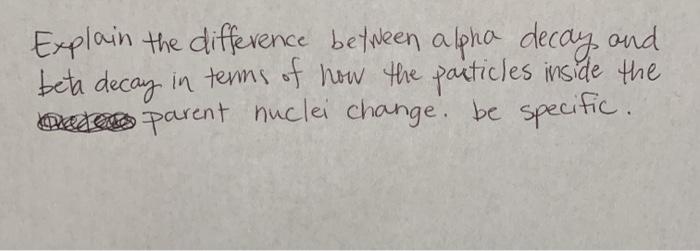 Explain the difference between alpha decay and
beta decay in terms of how the particles inside the
parent nuclei change. be specific.